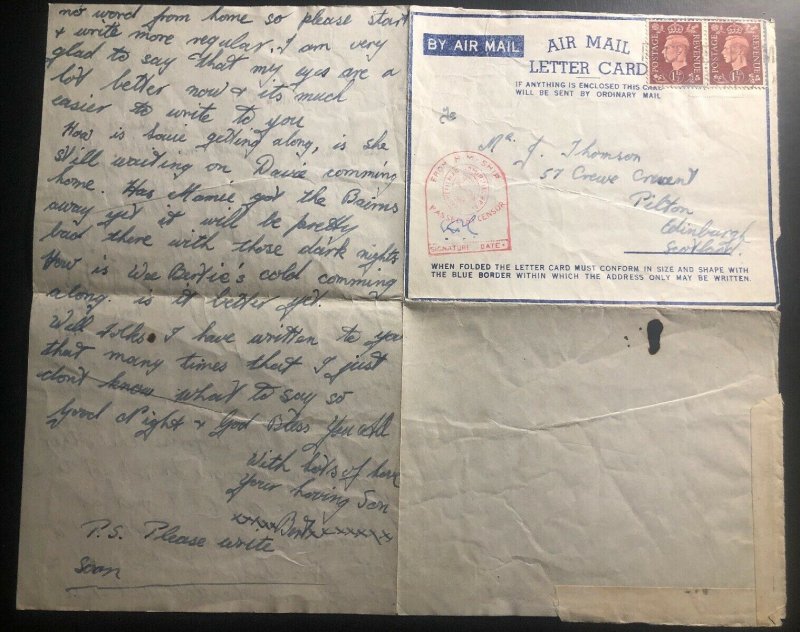 no word from home so please start
& write more regular. I am very
glad to say that my eyes are a
lot better now & it's much
easier to write to you
How is getting along, is she
still waiting on comming
home. Has Mamie got the Bairns
away yet it will be pretty
bad there with those dark nights
How is Wee Bertie's cold comming
along. is it better yet.
Well folks I have written to you
that many times that I just
don't know what to say so
Good Night & God Bless You All
With lots of love
Your loving Son
xxxx Bert xxxxxxx
P.S. Please write
soon
BY AIR MAIL
AIR MAIL
LETTER CARD
IF ANYTHING IS ENCLOSED THIS CARD
WILL BE SENT BY ORDINARY MAIL
POSTAGE
REVENUE
1½D
POSTAGE
REVENUE
1½D
To
Mr. J. Thomson
57 Crewe Crescent
Pilton
Edinburgh
Scotland.
FROM H.M. SHIP
PASSED CENSOR
SIGNATURE DATE
WHEN FOLDED THE LETTER CARD MUST CONFORM IN SIZE AND SHAPE WITH
THE BLUE BORDER WITHIN WHICH THE ADDRESS ONLY MAY BE WRITTEN.